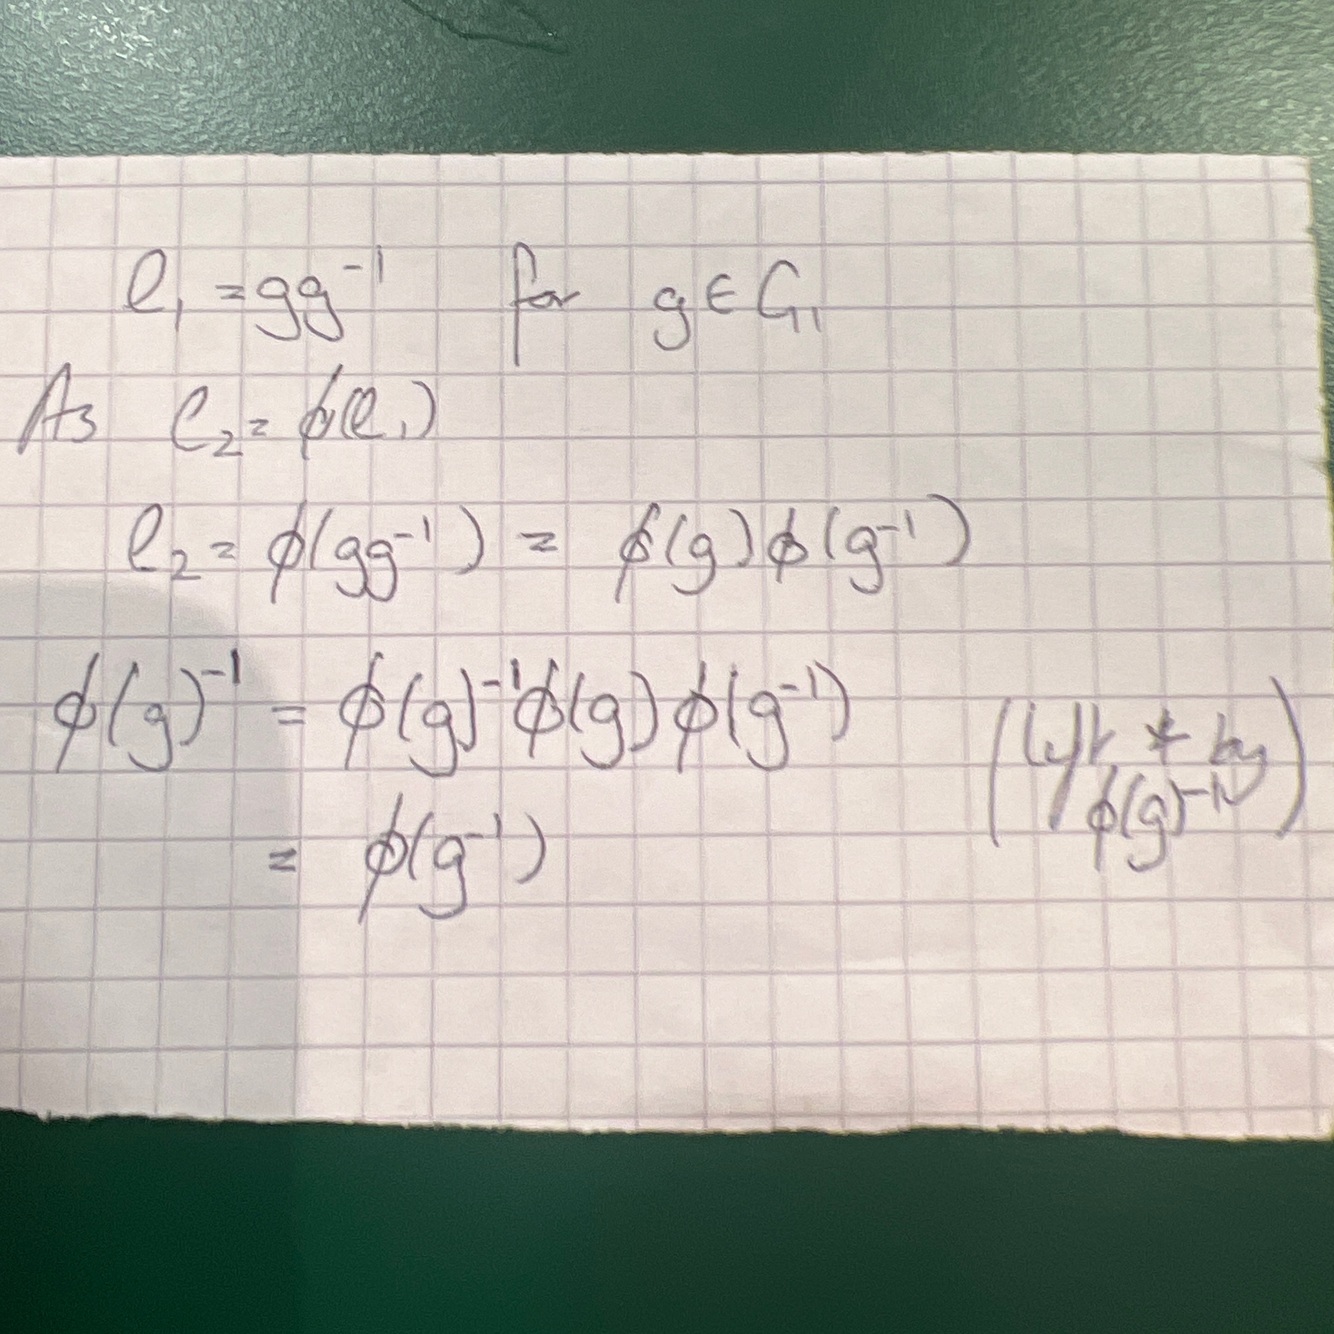 e₁ = gg⁻¹ for g ∈ G₁
As e₂ = ϕ(e₁)
e₂ = ϕ(gg⁻¹) = ϕ(g)ϕ(g⁻¹)
ϕ(g)⁻¹ = ϕ(g)⁻¹ϕ(g)ϕ(g⁻¹) ( * by
ϕ(g)⁻¹)
= ϕ(g⁻¹)